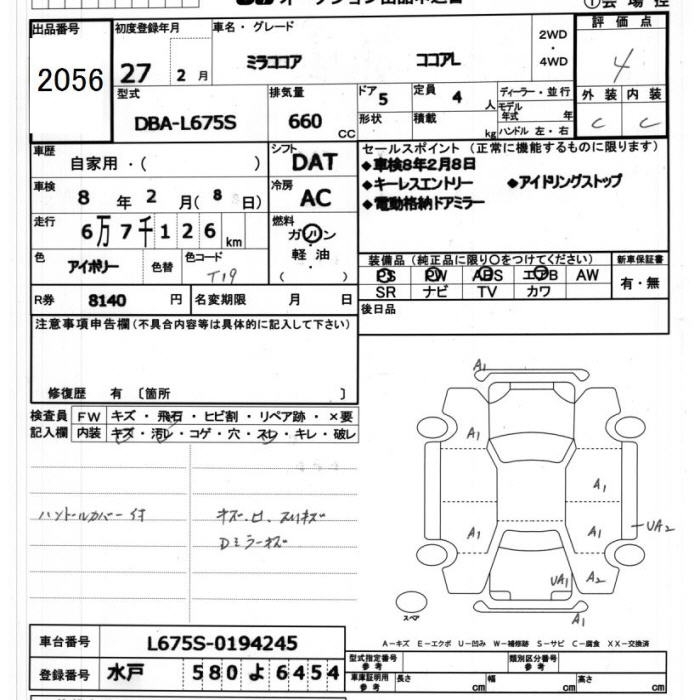 オークション出品申込書
①会場控
出品番号 2056
初度登録年月 27 2月
車名・グレード ミラココア ココアL
2WD・4WD
評価点 4
型式 DBA-L675S
排気量 660 CC
ドア 5
形状
定員 4 人
積載 kg
ディーラー・並行
モデル年式 年
ハンドル 左・右
外装 内装
C C
車歴 自家用・( )
シフト DAT
車検 8年2月(8日)
冷房 AC
走行 6万7千126km
燃料 ガソリン 軽・油 ( )
色 アイボリー 色替
色コード T19
R券 8140円
名変期限 月 日
セールスポイント(正常に機能するものに限ります)
◆車検8年2月8日
◆キーレスエントリー ◆アイドリングストップ
◆電動格納ドアミラー
装備品(純正品に限り〇をつけてください)
新車保証書
PS PW ABS エアB AW
SR ナビ TV カワ
有・無
後日品
注意事項申告欄(不具合内容等は具体的に記入して下さい)
修復歴 有 〔箇所 〕
検査員記入欄
FW キズ・飛石・ヒビ割・リペア跡・×要
内装 キズ・汚レ・コゲ・穴・スレ・キレ・破レ
ハンドルカバー付
キズ.凹.スリキズ
Dミラーキズ
A1
A1
A1
A1
A1
UA2
UA1
A2
A1
スペア
A-キズ E-エクボ U-凹み W-補修跡 S-サビ C-腐食 XX-交換済
車台番号 L675S-0194245
登録番号 水戸 580 よ 6454
型式指定番号 参考
類別区分番号 参考
車庫証明用 参考 長さ cm 幅 cm 高さ cm